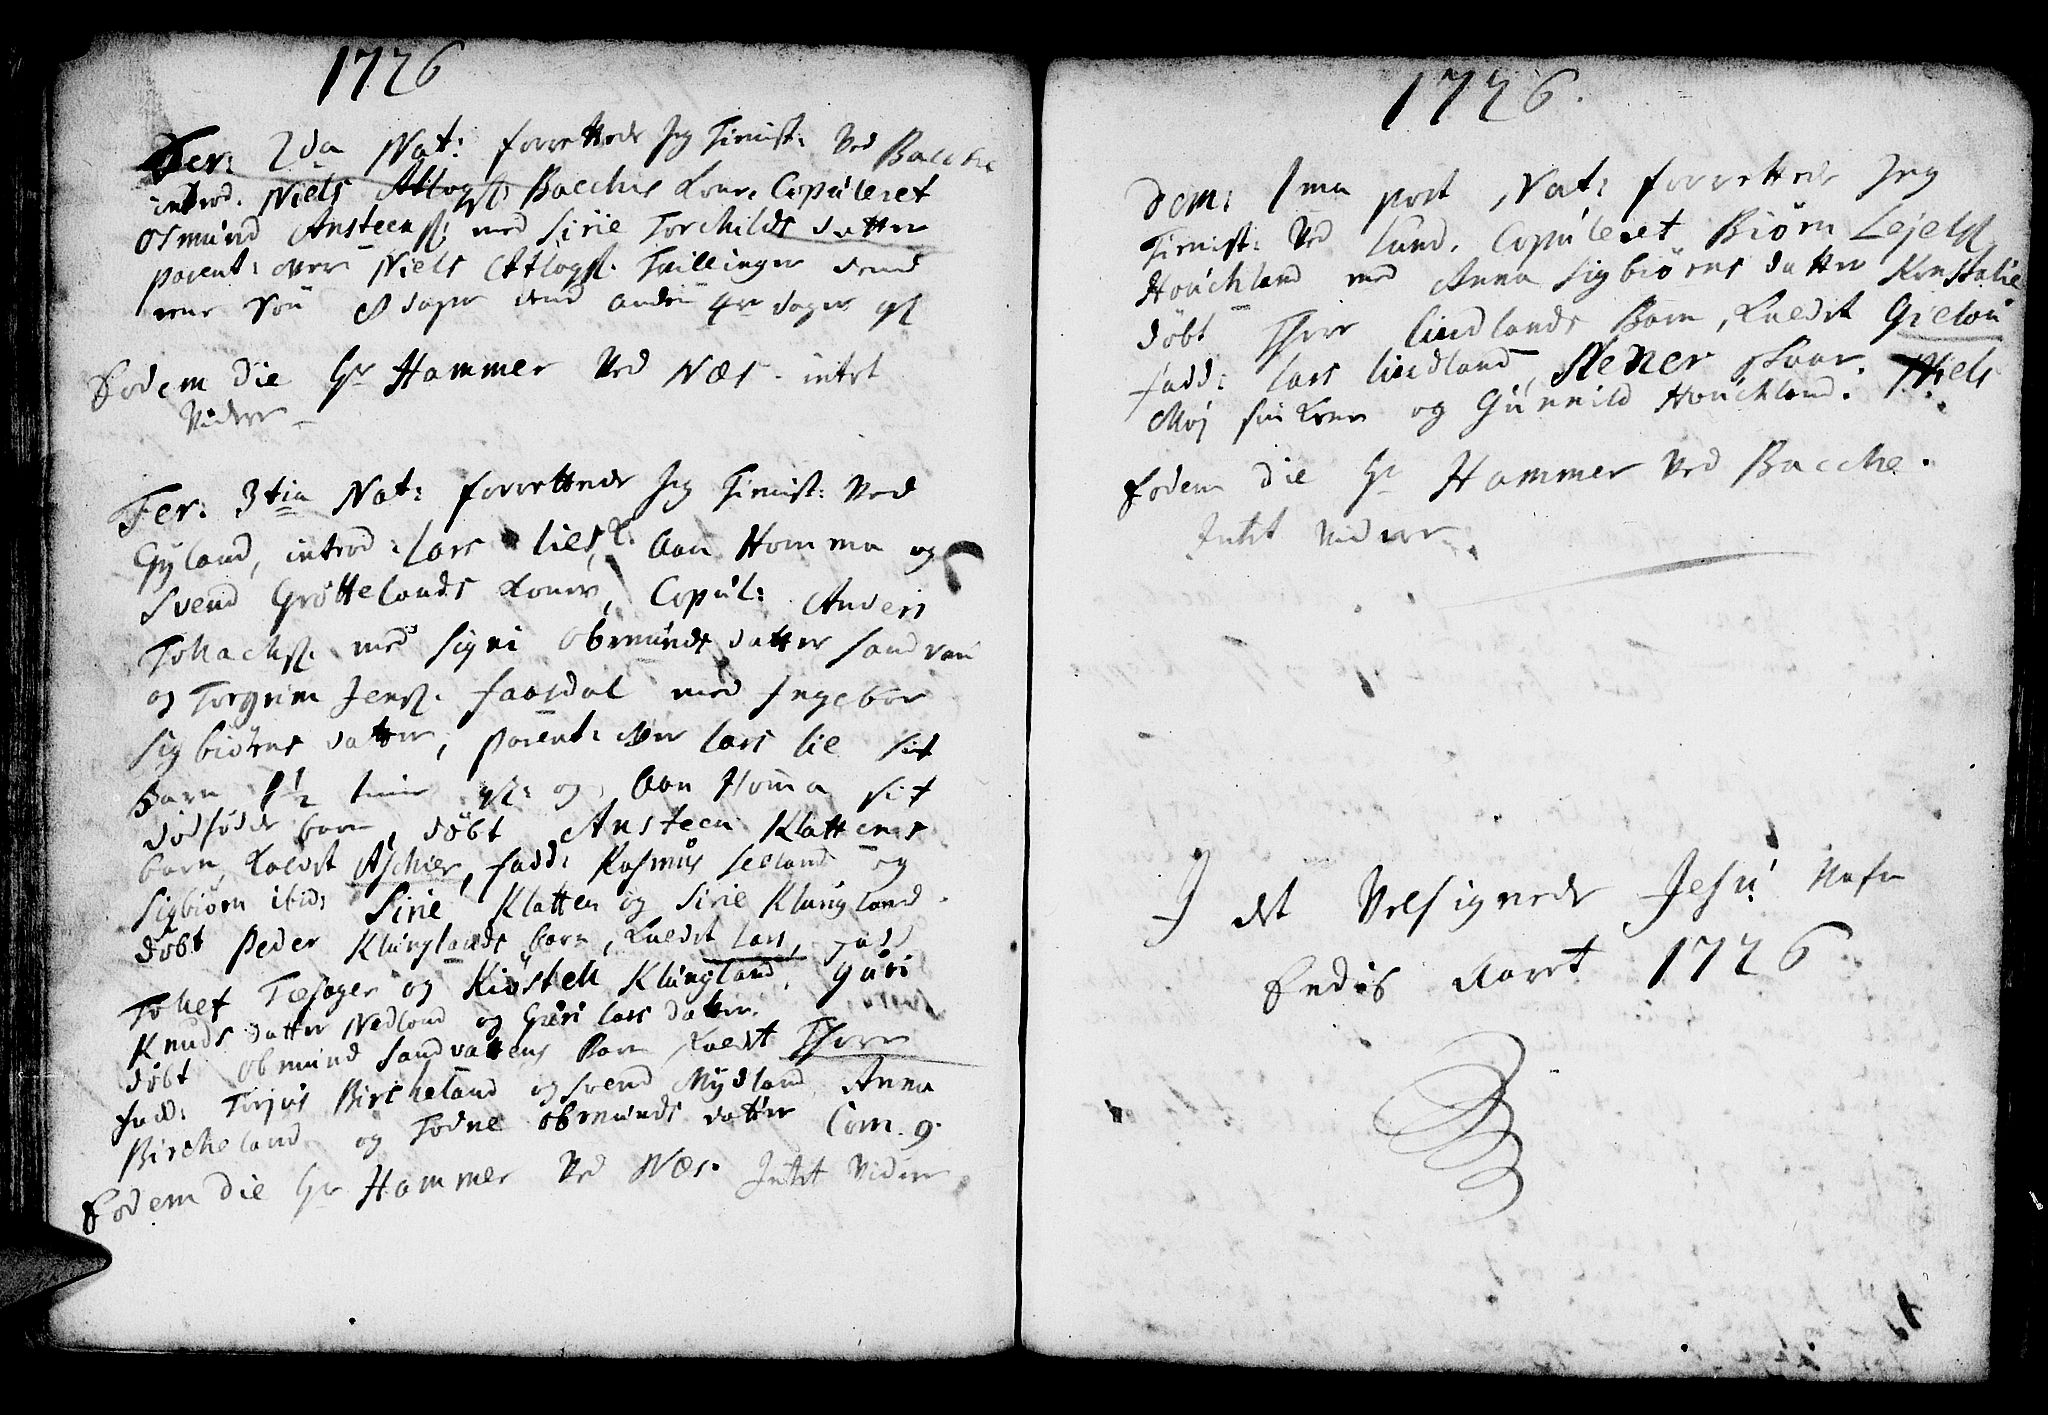 1726
Fer: 2da Nat: forrettede Jeg Tienist: Ved Bacche
introd. Niels Atlogs: Bacches Kone, Copuleret
Osmund Ansteens: med Sirie Torchilds datter
parent: over Niels Atlogs: Tvillinger dend
eene Søn 8 dager dend anden 4re dager gl
Eodem Die Hr Hammer Ved Næs. intet
Videre
Fer: 3tia Nat: forrettede Jeg Tienist: Ved
Gyland, introd: Lars Lies, Aan Homma og
Svend Grøttelands Koner, Copul: Anders
Tollachs: med Signi Obmunds datter Sandvan
og Torgrim Jens: Faasdal med Ingebor
Sigbiørns datter, parent: over Lars Lie sit
Barn 1½ time gl: og Aan Homma sit
dødfødde barn, døbt Ansteen Klattens
barn, Kaldet Aschier, fadd: Rasmus Selland og
Sigbiørn ibid: Sirie Klatten og Sirie Klungland.
døbt Peder Klunglands barn, Kaldet Lars, fadd
Tollef Tesager og Kiøsten Klungland, Guri
Knuds datter Nedland og Guri Lars datter.
døbt Obmund Sandvattens Barn Kaldet Thore
fadd: Torjus Bircheland og Svend Mydland Anna
Bircheland og Todne Obmunds datter Com. 9.
Eodem Die Hr Hammer Ved Næs. Intet Videre
1726.
Dom: 1ma post Nat: forrettede Jeg
Tienist: Ved Lund. Copuleret Biørn Lejels:
Houchland med Anna Sigbiørns datter Konstalie
døbt Thore Lindlands Barn, Kaldet Gielou
fadd: Lars Lindland, Stener Skaar. Niels
Moj sin Kone og Gunnild Houchland.
Eodem Die Hr Hammer Ved Bacche.
Intet Videre.
I det Velsignede Jesu Nafn
Endis Aaret 1726